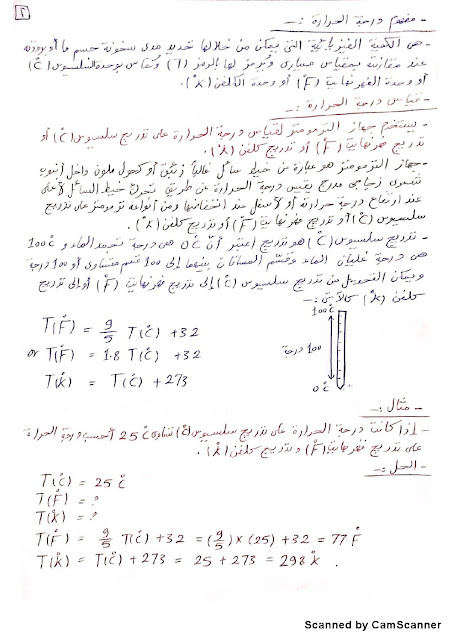 ٢
- مفهوم درجة الحرارة :-
- هي الكمية الفيزيائية التي يمكن من خلالها تحديد مدى سخونة جسم ما أو برودته
عند مقارنته بمقياس معياري ويرمز لها بالرمز (T) وتقاس بوحدة السلسيوس (C°)
أو وحدة الفهرنهايت (F°) أو وحدة الكلفن (K°).
- قياس درجة الحرارة :-
- يستخدم جهاز الترمومتر لقياس درجة الحرارة على تدريج سلسيوس (C°) أو
تدريج فهرنهايت (F°) أو تدريج كلفن (K°).
- جهاز الترمومتر هو عبارة عن خيط سائل غالباً زئبق أو كحول ملون داخل أنبوب
شعري زجاجي مدرج يقيس درجة الحرارة عن طريق تحرك خيط السائل لأعلى
عند ارتفاع درجة حرارته أو لأسفل عند انخفاضها ومن أنواعه ترمومتر على تدريج
سلسيوس (C°) أو تدريج فهرنهايت (F°) أو تدريج كلفن (K°).
- تدريج سلسيوس (C°) هو تدريج اعتبر أن 0C° هي درجة تجمد الماء و 100C°
هي درجة غليان الماء وقسمت المسافات بينهما إلى 100 قسم متساوي أو 100 درجة
ويمكن التحويل من تدريج سلسيوس (C°) إلى تدريج فهرنهايت (F°) أو إلى تدريج
كلفن (K°) كالآتي :-
T(F°) = 9/5 T(C°) + 32
or T(F°) = 1.8 T(C°) + 32
T(K°) = T(C°) + 273
100C°
100 درجة
0C°
- مثال :-
- إذا كانت درجة الحرارة على تدريج سلسيوس (C°) تساوي 25C° أحسب درجة الحرارة
على تدريج فهرنهايت (F°) وتدريج كلفن (K°).
- الحل :-
T(C°) = 25 C°
T(F°) = ?
T(K°) = ?
T(F°) = 9/5 T(C°) + 32 = (9/5) × (25) + 32 = 77 F°
T(K°) = T(C°) + 273 = 25 + 273 = 298 K°.
Scanned by CamScanner